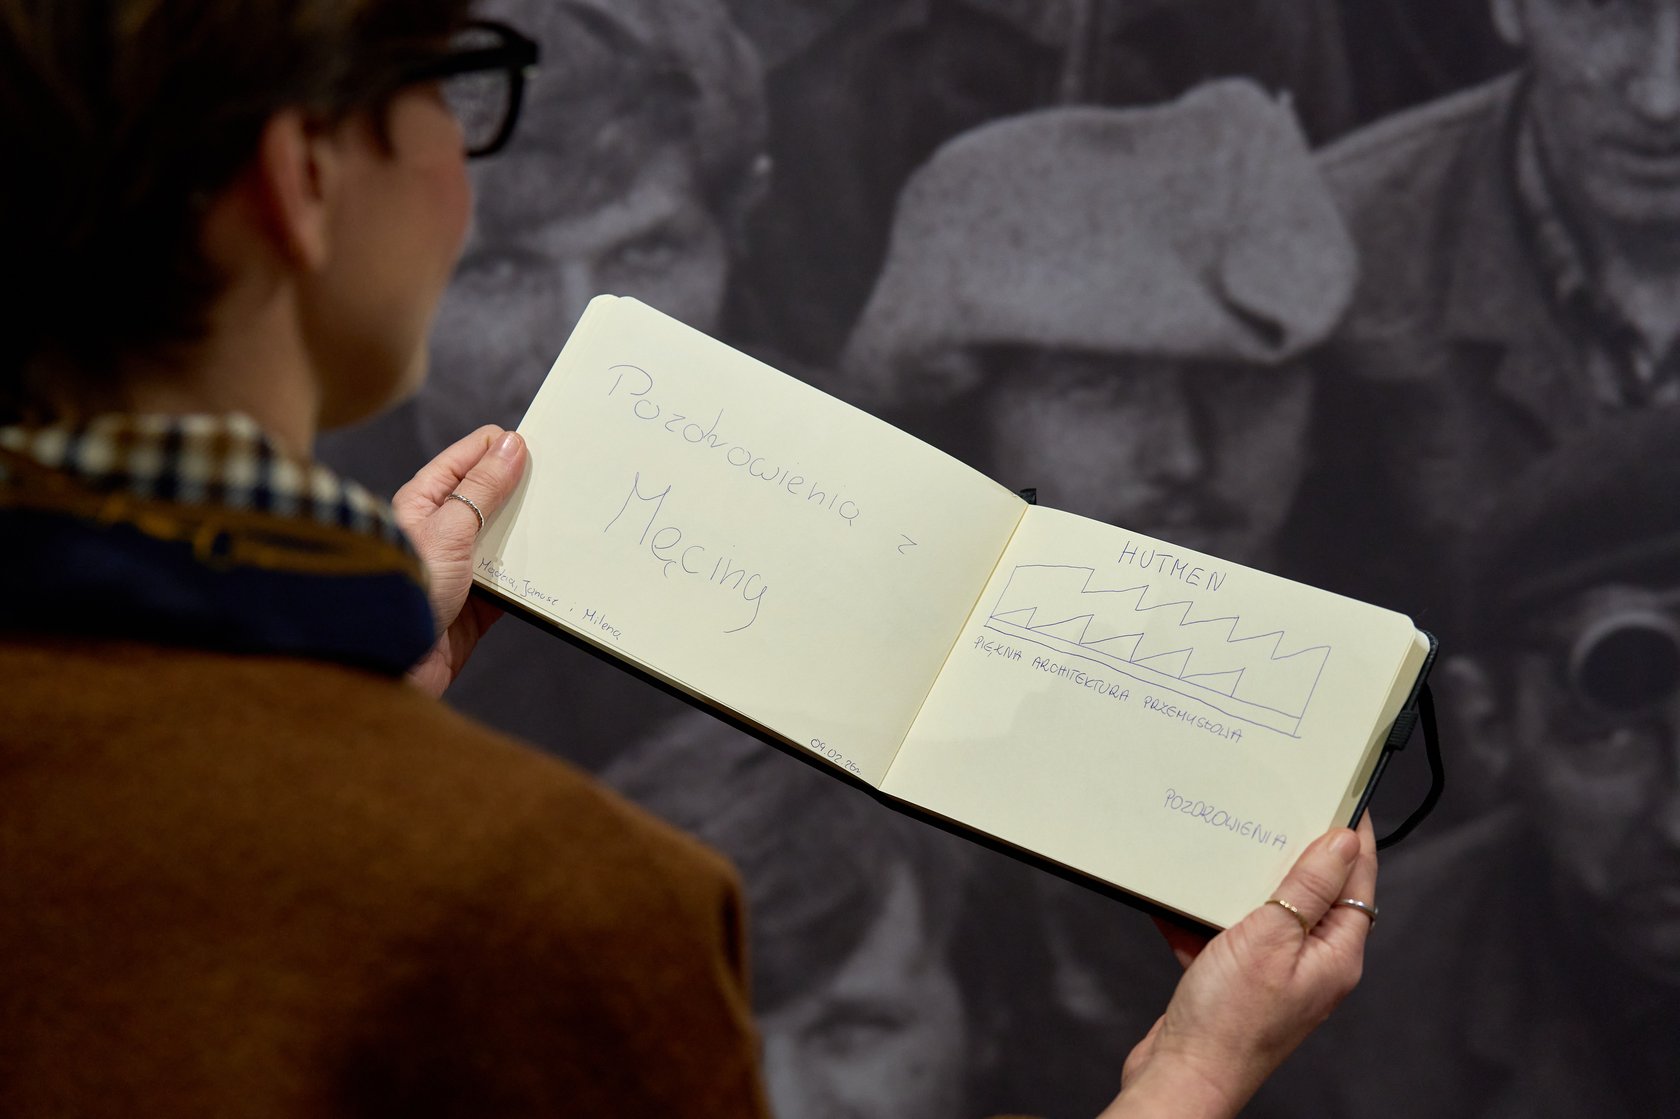 Pozdrowienia z
Męciny
Magda, Janusz i Milena
09.02.26r.
HUTMEN
PIĘKNA ARCHITEKTURA PRZEMYSŁOWA
POZDROWIENIA